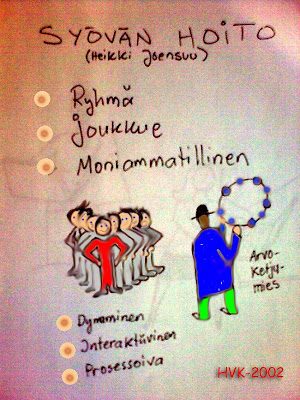 SYÖVÄN HOITO
(Heikki Joensuu)
Ryhmä
Joukkue
Moniammatillinen
Arvo-
ketju-
mies
Dynaminen
Interaktiivinen
Prosessoiva
HVK-2002